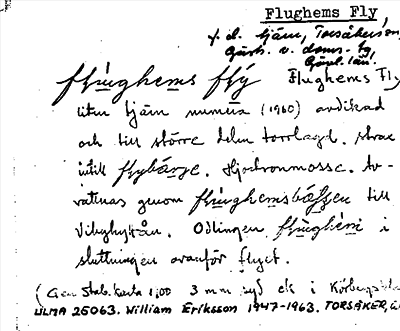 Flughems Fly
f.d. tjärn, Torsåkers
Gästr. v. doms.
Gävl. län.
flùghems flý Flughems Fly
liten tjärn numera (1960) avdikad
och till större delen torrlagd. strax
intill flybärge. Hjortronmosse. Av-
vattnas genom flùghemsbäkken till
Vibyhyttån. Odlingen flùghem i
sluttningen ovanför flyet.
(Gen Stab. karta 3 mm syd ek i
ULMA 25063. William Eriksson 1947-1963. TORSÅKER,